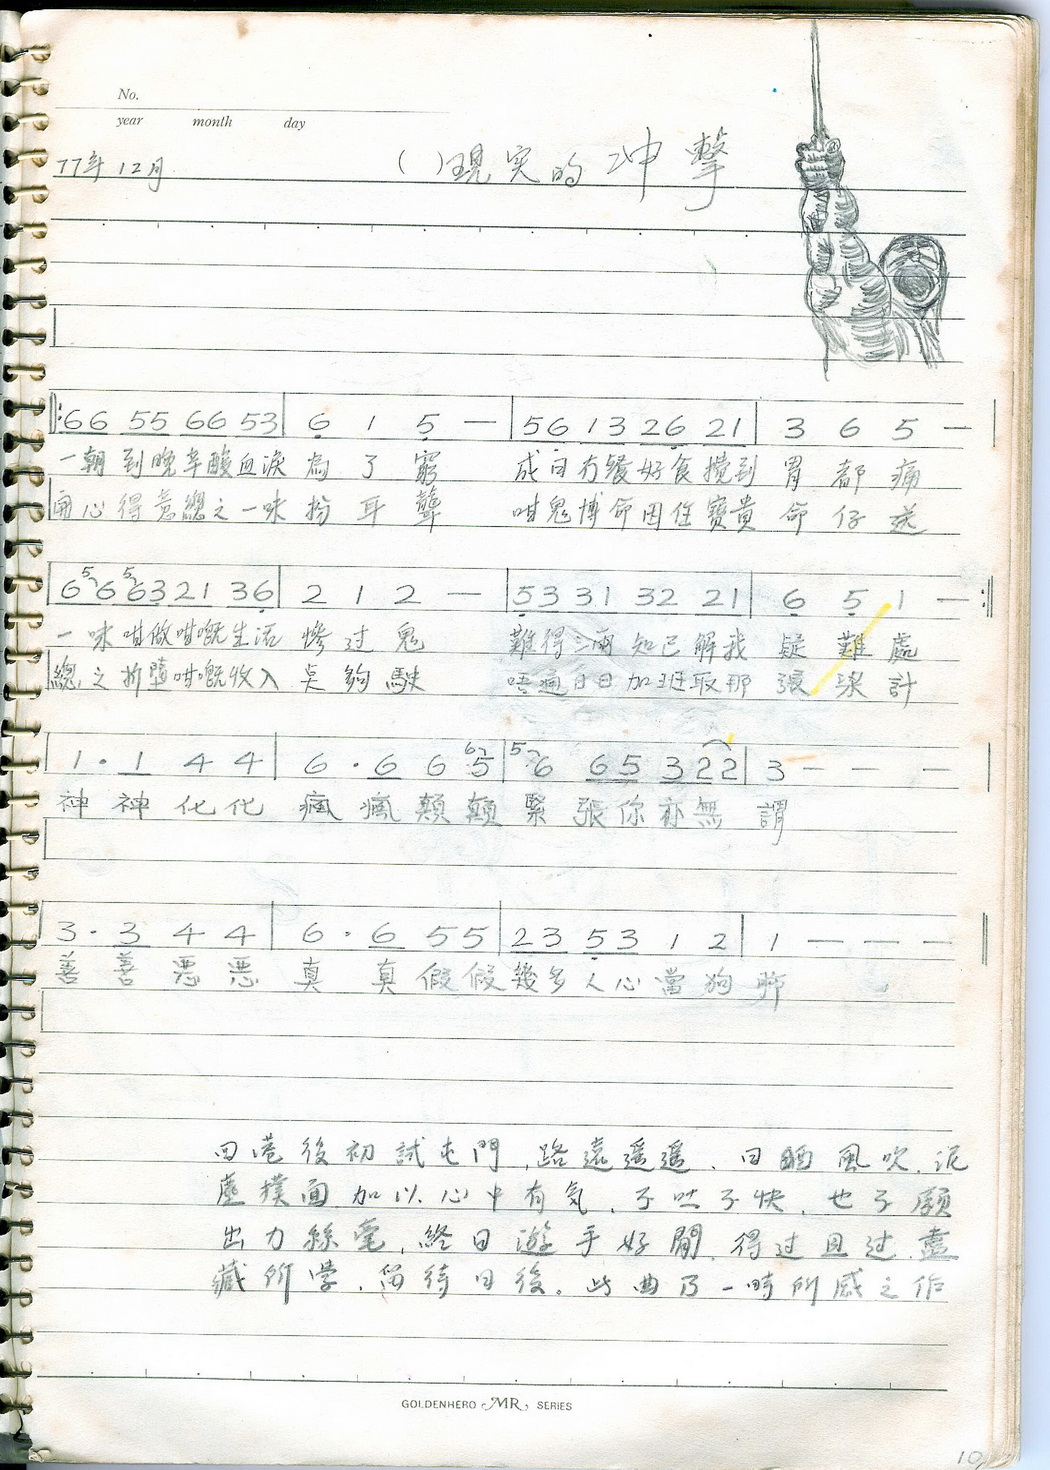 No.
year month day
77年12月
( )現实的冲擊
66 55 66 53 | 6 1 5 — | 56 13 26 21 | 3 6 5 —
一朝到晚辛酸血淚為了窮 成日冇餐好食攪到胃都痛
開心得意總之一味扮耳聾 咁鬼博命因住寶貴命仔送
6 56 563 21 36 | 2 1 2 — | 53 31 32 21 | 6 5 1 —
一味咁做咁嘅生活慘过鬼 難得三兩知己解我疑難處
總之折墮咁嘅收入點夠駛 唔通日日加班取那張樑計
1 · 1 4 4 | 6 · 6 6 65 | 56 65 322 | 3 — — —
神神化化瘋瘋顛顛緊張你亦無謂
3 · 3 4 4 | 6 · 6 55 | 23 53 1 2 | 1 — — —
善善惡惡真真假假幾多人心當狗
回港後初試屯門,路遠遥遥,日晒風吹,泥
塵撲面加以心中有気,不吐不快,也不願
出力絲毫,終日遊手好閒,得过且过,盡
藏所学,留待日後。此曲乃一時所感之作
GOLDENHERO MR SERIES
10